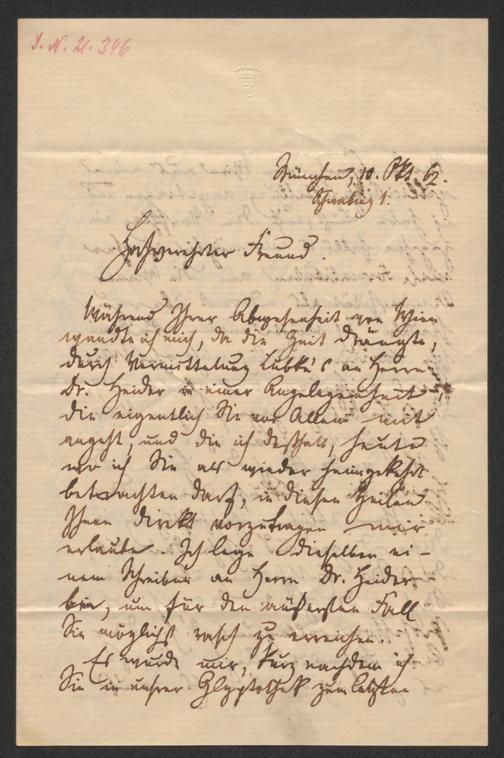 I. N. 21.346
München, 10. Okt. 62.
Hochverehrter Freund.
Während Ihrer Abwesenheit von Wien
wandte ich mich, da die Zeit drängte,
durch Vermittelung Lübke's an Herrn
Dr. Heider in einer Angelegenheit,
die eigentlich Sie vor Allem mit
angeht, und die ich deßhalb, heute
wo ich Sie als wieder heimgekehrt
betrachten darf, in diesen Zeilen
Ihnen direkt vorzutragen mir
erlaube. Ich lege dieselben ei-
nem Schreiben an Herrn Dr. Heider
bei, um für den äußersten Fall
Sie möglichst rasch zu erreichen.
Es wurde mir, kurz nachdem ich
Sie in unsrer Glyptothek zum letzten